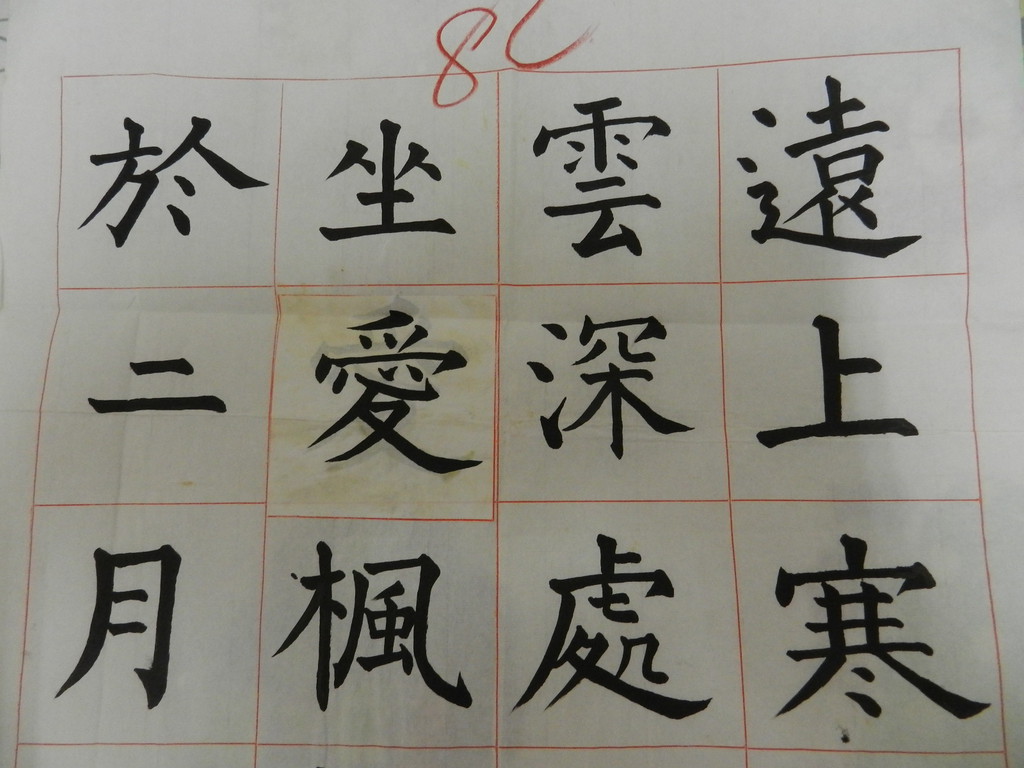 遠上寒
雲深處
坐愛楓
於二月